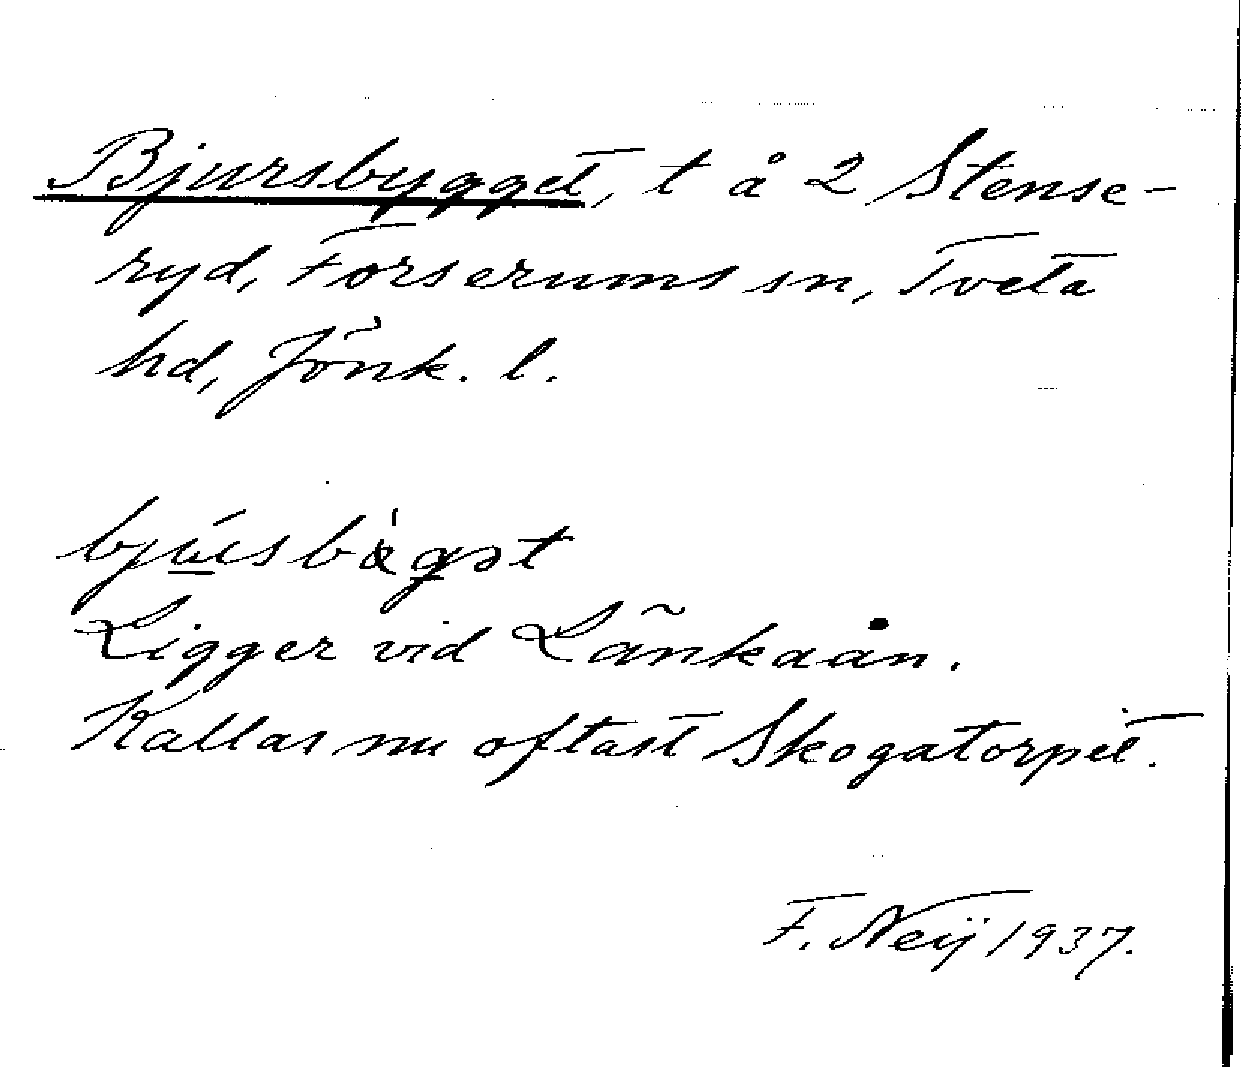 Bjursbygget, t å 2 Stense-
ryd, Forserums sn, Tveta
hd, Jönk. l.
Ligger vid Länkaån.
Kallas nu oftast Skogatorpet.
F. Neij 1937.